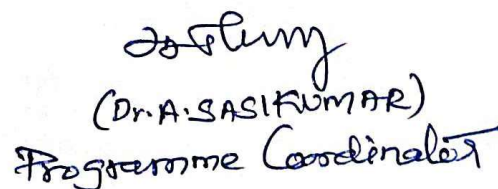 (Dr.A.SASIKUMAR)
Programme Coordinator